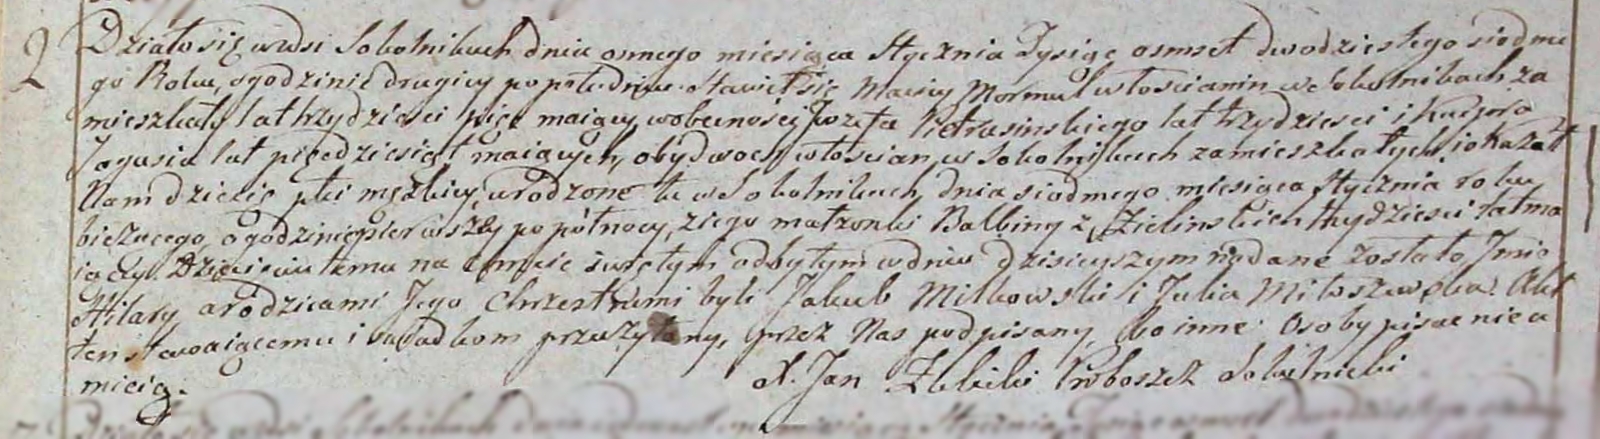 2
Działo się w wsi Sokolnikach dnia osmego miesiąca Stycznia Tysiąc osmset dwodziestego siodme
go Roku, o godzinie drugiey po południu. Stawił się Maciey Mormul włoscianin w Sokolnikach za
mieszkały lat trzydziesci pięc maiący w obecności Jozefa Pietrasinskiego lat trzydziesci i Kacpra
Jagusia lat pięcdziesiąt maiących, obydwoch włoscian, w Sokolnikach zamieszkałych, i okazał
Nam dziecię płci męzkiey, urodzone tu w Sokolnikach dnia siodmego miesiąca Stycznia roku
biezącego, o godzinie pierwszey po połnocy, z iego małzonki Balbiny z Zielinskich trzydziesci lat ma
iącey. Dziecięciu temu na Chrzcie świętym odbytym w dniu dzisieyszym nadane zostało Jmie
Hilary a rodzicami Jego Chrzestnemi byli Jakub Milkowski i Julia Miłoszewska. Akt
ten stawaiącemu i swiadkom przeczytany, przez Nas podpisany, bo inne Osoby pisac nie u
mieią.
X. Jan Proboszcz Sokolnicki